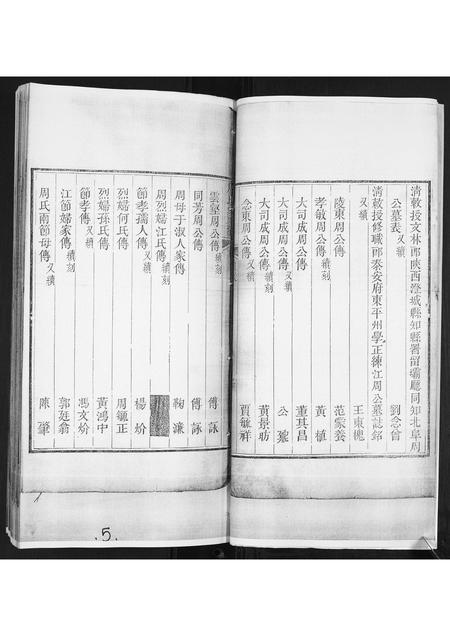 清敕授文林郎陝西澄城縣知縣署留壩廳同知北阜周
公墓表 又續 劉念曾
清敕授修職郎泰安府東平州學正練江周公墓誌銘
又續 王東槐
陵東周公傳 范蒙養
孝敏周公傳 續刻 黃植
大司成周公傳 董其昌
大司成周公傳 又續 公鼐
大司成周公傳 續刻 黃景昉
念東周公傳 又續 賈毓祥
雲壑周公傳 續刻 傅詠
同芳周公傳 傅詠
周母于淑人家傳 鞠濂
周烈婦江氏傳 續刻
節孝孺人傳 又續 楊玠
烈婦何氏傳 周毓正
烈婦孫氏傳 黃鴻中
節孝傳 又續 馮文炌
江節婦家傳 續刻 郭廷翕
周氏兩節母傳 又續 陳肇
5